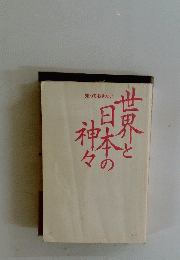 知っておきたい
世界と
日本の
神々